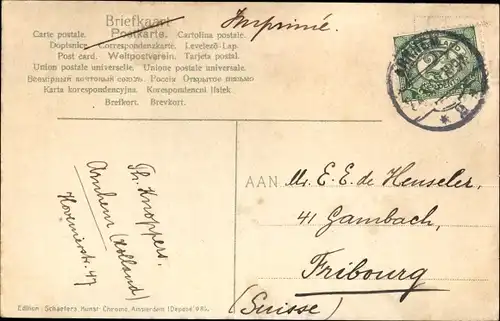 Briefkaart.
Postkarte.
Imprimé.
Carte postale. Cartolina postale.
Dopisnice Correspondenzkarte. Levelező-Lap.
Post card. Weltpostverein. Tarjeta postal.
Union postale universelle. Unione postale universale.
Всемірный почтовый союзъ. Россія Открытое письмо
Karta korespondencyjna. Korespondencni lístek.
Brefkort. Brevkort.
ARNHEM
Th. Knoppers.
Arnhem (Holland)
AAN
Mr. E. E. de Henseler,
41 Gambach,
Fribourg
(Suisse)
Edition: Schaefers Kunst-Chromo, Amsterdam (Déposé)